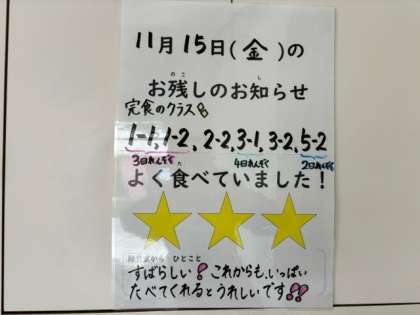 11月15日(金)の
お残しのお知らせ
完食のクラス
1-1,1-2, 2-2,3-1, 3-2,5-2
3日れんぞく 4日れんぞく 2日れんぞく
よく食べていました!
ひとこと
すばらしい!これからも、いっぱい
たべてくれるとうれしいです!!